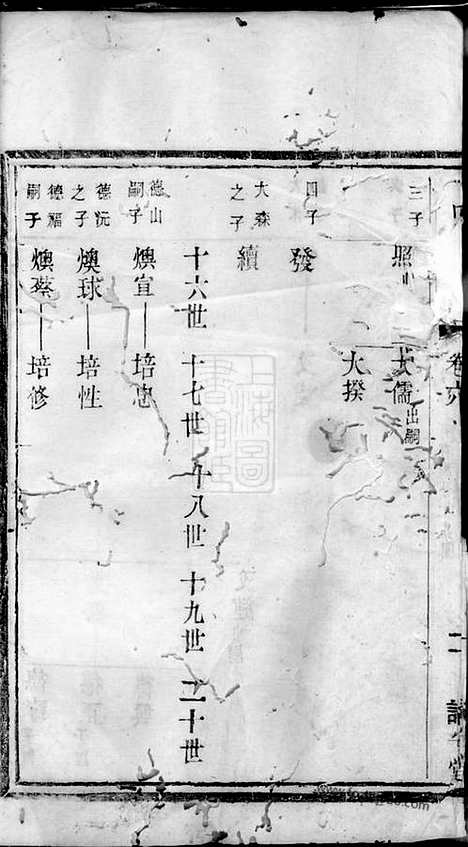 三子 照 大儒 出嗣
大揆
四子 發
大森之子 續
十六世 十七世 十八世 十九世 二十世
德山嗣子 燠宣 培忠
德沅之子 燠球 培性
德福嗣子 燠蔡 培修
卷
二